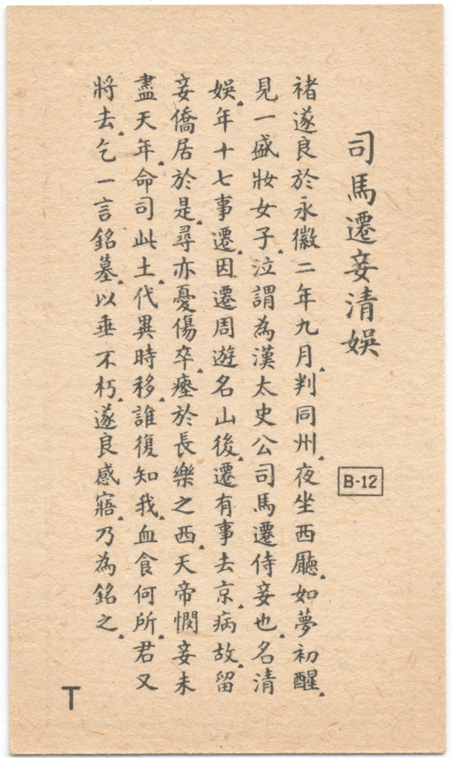 司馬遷妾清娛
褚遂良於永徽二年九月.判同州.夜坐西廳.如夢初醒.
見一盛妝女子.泣謂為漢太史公司馬遷侍妾也.名清
娛.年十七事遷.因遷周遊名山後.遷有事去京.病故.留
妾僑居於是.尋亦憂傷卒.瘞於長樂之西.天帝憫妾未
盡天年.命司此土.代異時移.誰復知我.血食何所.君又
將去.乞一言銘墓.以垂不朽.遂良感寤.乃為銘之.
B-12
T